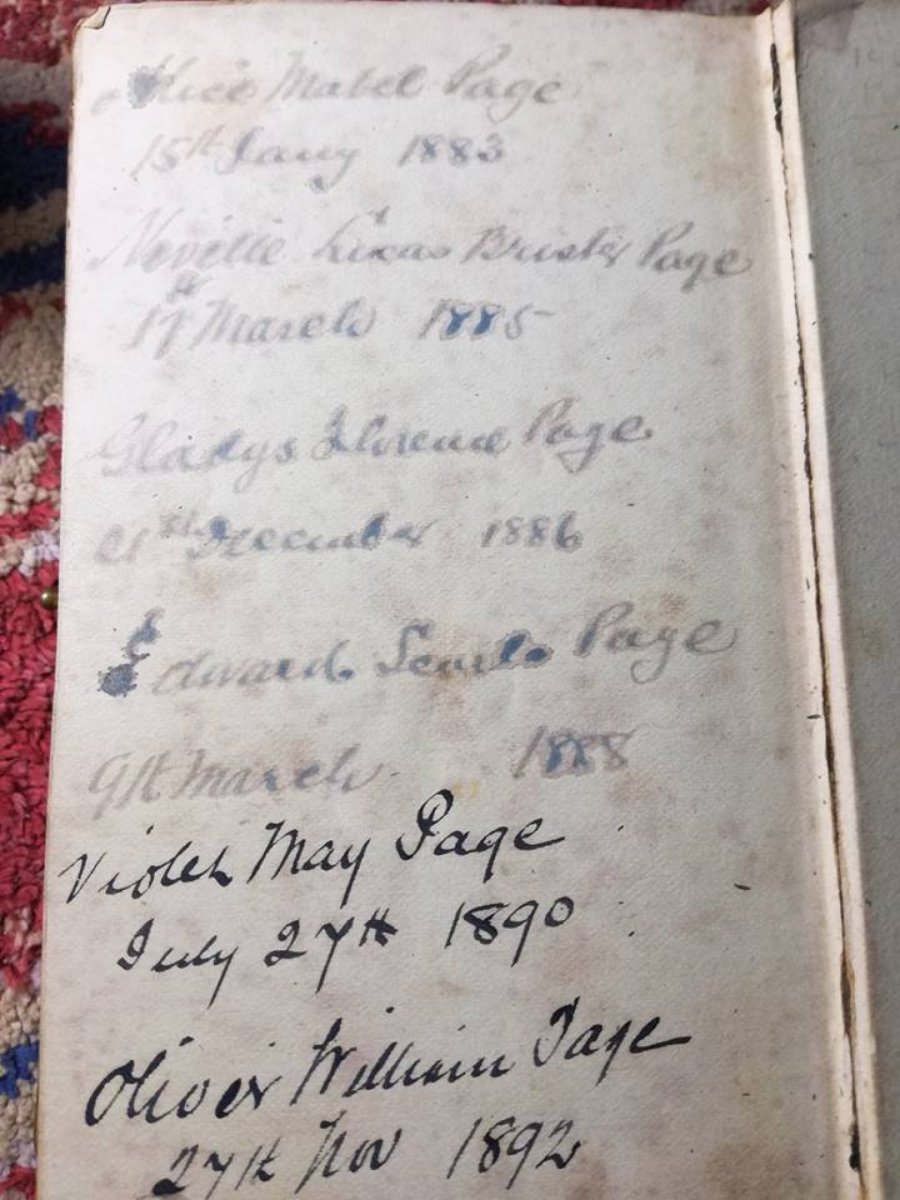 Alice Mabel Page
15th Jany 1883
Neville Lucas Page
17th March 1885
Gladys Florence Page
21st December 1886
Edward Searle Page
9th March 1888
Violet May Page
July 27th 1890
Oliver William Page
27th Nov 1892